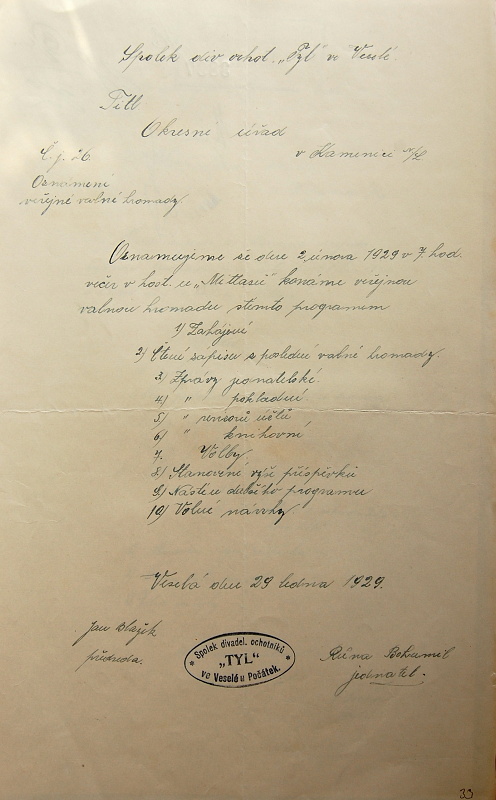 Spolek div. ochot. „Tyl" ve Veselé.
Titl
Okresní úřad
Č. j. 26.
v Kamenici n/L
Oznámení
veřejné valné hromady.
Oznamujeme že dne 2. února 1929 v 7. hod.
večer v host. u „Metlasů" konáme veřejnou
valnou hromadu stímto programem
1) Zahájení
2) Čtení zápisu s poslední valné hromady.
3) Zprávy jednatelské.
4) " pokladní.
5) " revisorů účtů
6) " knihovní
7. Volby
8) Stanovení výše příspěvků
9) programu
10) Volné návrhy
Veselá dne 29 ledna 1929.
Jan Blažek
předseda.
Spolek divadel. ochotníků
„TYL"
ve Veselé u Počátek.
Růna Bohumil
jednatel.
33